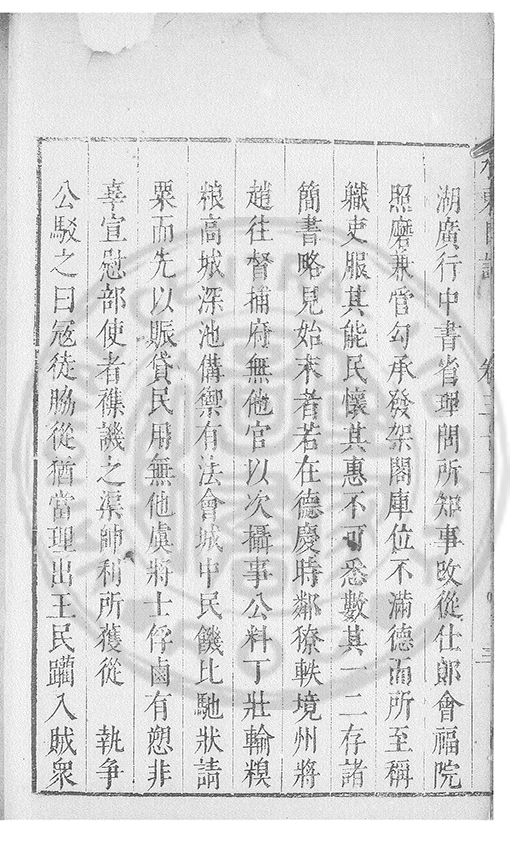 湖廣行中書省理問所知事改從仕郎會福院
照磨兼管勾承發架閣庫位不滿德而所至稱
職吏服其能民懷其惠不可悉數其一二存諸
簡書略見始末者若在德慶時鄰獠軼境州將
趙往督捕府無他官以次攝事公料丁壯輸糗
粮高城深池備禦有法會城中民饑比馳狀請
粟而先以賑貸民用無他虞將士俘鹵有愬非
辜宣慰部使者雜譏之渠帥利所獲從 執爭
公駁之曰寇徒脇從猶當理出王民躪入賊衆